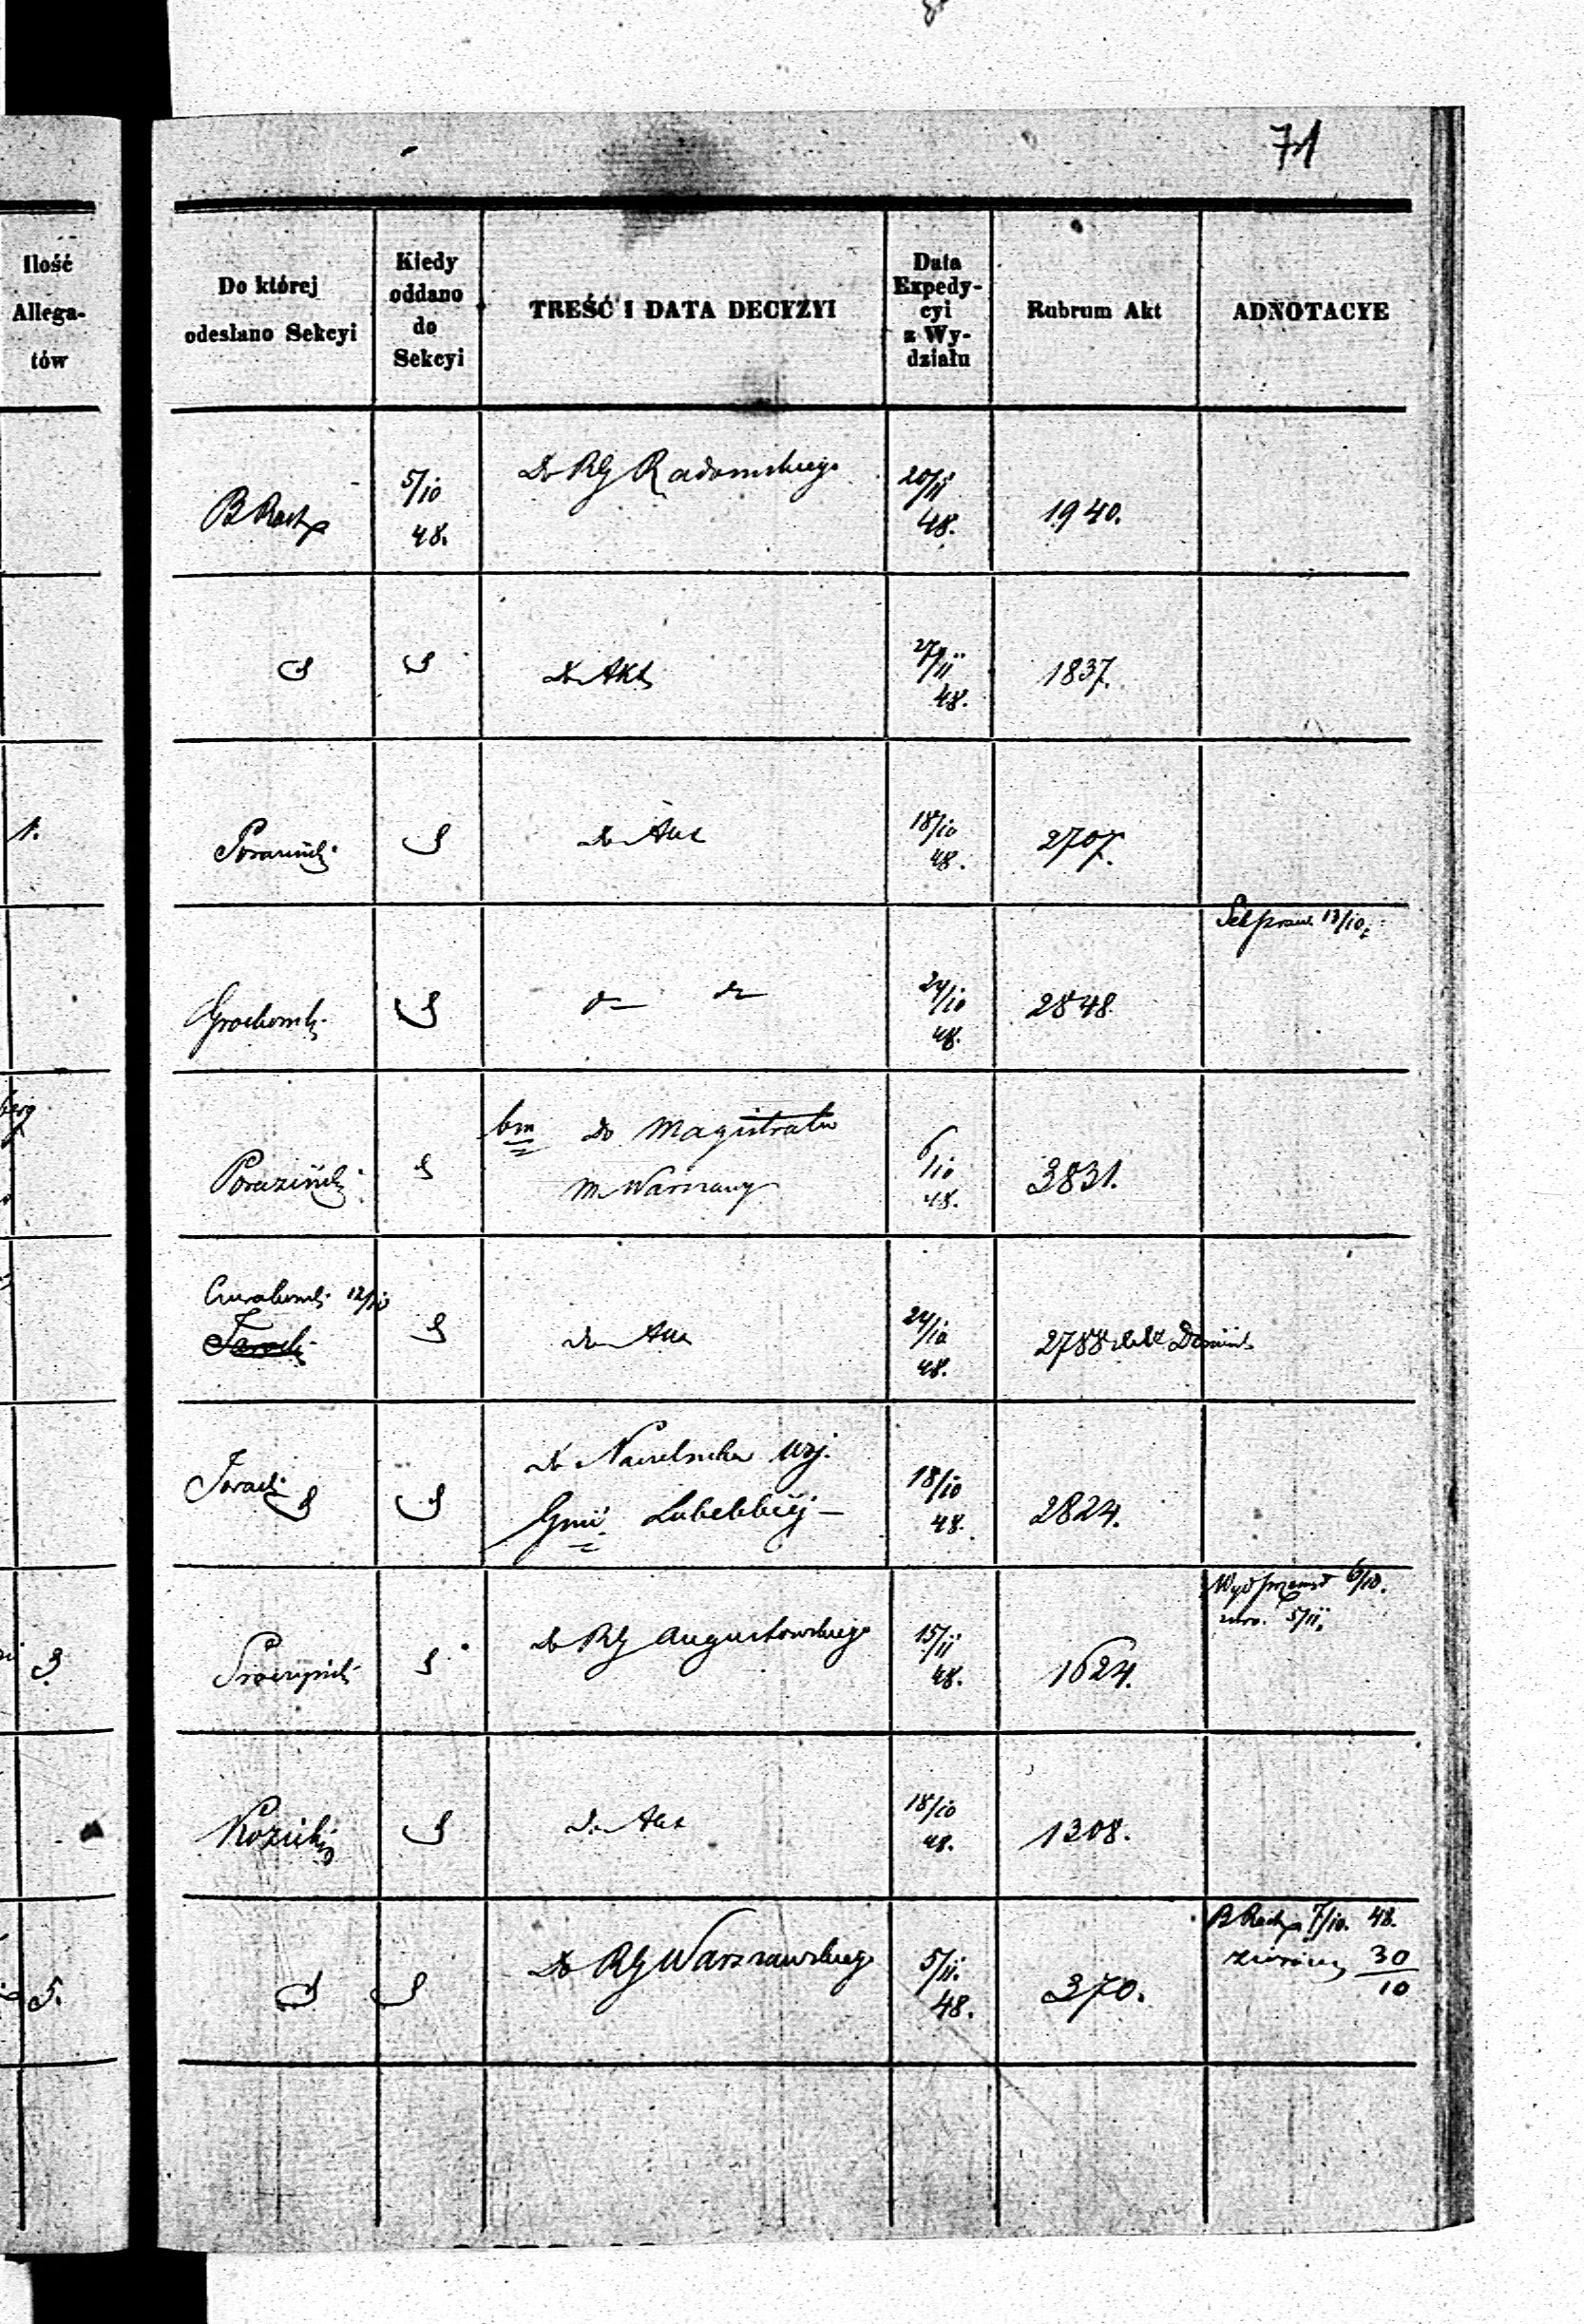 71
Ilość
Allega-
tów
Do której
odesłano Sekcyi
Kiedy
oddano
do
Sekcyi
TREŚĆ I DATA DECYZYI
Data
Expedy-
cyi
z Wy-
działu
Rubrum Akt
ADNOTACYE
B Rach
5/10
48.
Do RG Radomskiego
20/11
48.
1940.
Do Akt
27/11
48.
1837.
1.
Do Akt
18/10
48.
2707.
Sek praw. 13/10
24/10
48.
2848.
Poraziński
bm do Magistratu
m Warszawy
6/10
48.
3831.
12/10
do Akt
24/10
48.
2788
do Naczelnika Woj.
Gnii Lubelskiej —
18/10
48.
2824.
3.
do RG Augustowskiego
15/11
48.
1624.
Wyd przemsł 6/10.
zwro. 5/11.
Kozicki
do Akt
18/10
48.
1308.
5.
Do RG Warszawskiego
5/11.
48.
370.
B Rach 7/10. 48.
30
10